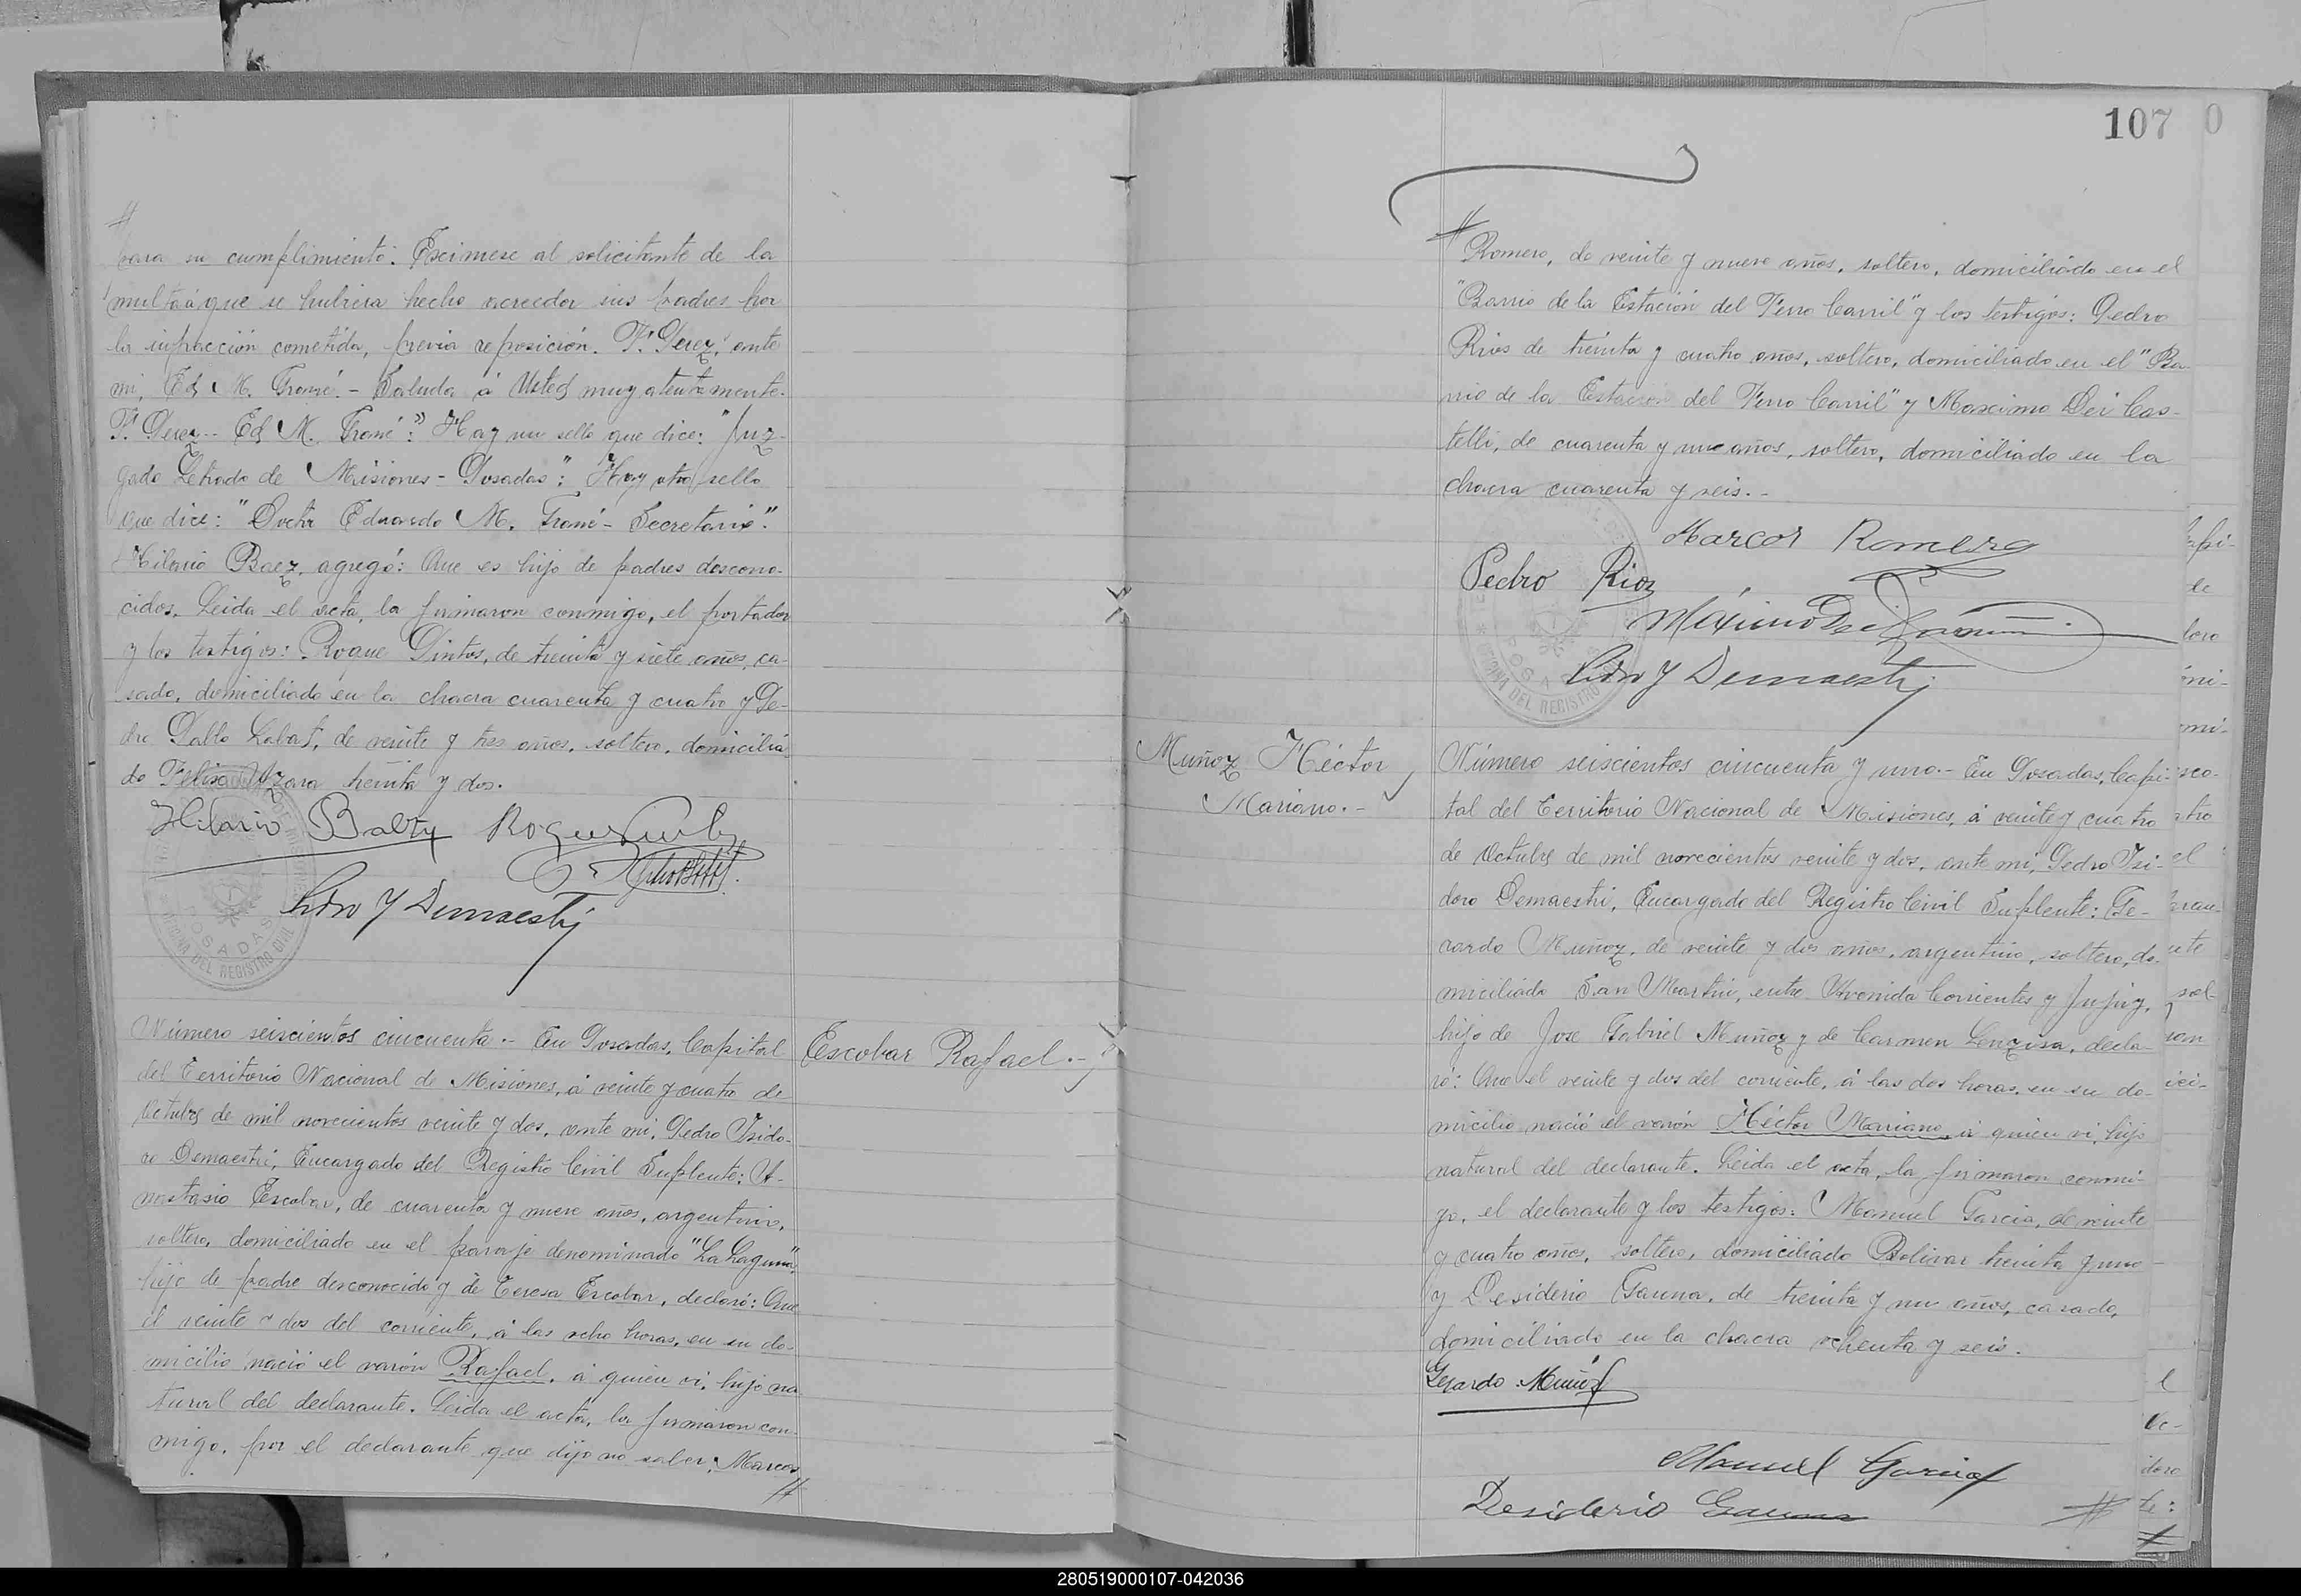 //
para su cumplimiento. Exímese al solicitante de la
multa á que se hubiera hecho acreedor sus padres por
la infracción cometida, previa reposición. F. Perez, ante
mi, Ed M. - Saluda á Usted muy atentamente.
F. Perez - Ed M. " Hay un sello que dice: "Juz-
gado Letrado de Misiones - Posadas": Hay otro sello
que dice: "Doctor Eduardo M. - Secretario".
Hilario Baez, agregó: Que es hijo de padres descono-
cidos. Leida el acta, la firmaron conmigo, el portador
y los testigos: Roque Pintos, de treinta y siete años, ca-
sado, domiciliado en la chacra cuarenta y cuatro y Pe-
dro Pablo Labat, de veinte y tres años, soltero, domicilia-
do Felix Azara treinta y dos.
Hilario Baez Roque
Pedro Y Demaestri
POSADAS
OFICINA DEL REGISTRO CIVIL
Número seiscientos cincuenta.- En Posadas, Capital
Escobar Rafael.-
del Territorio Nacional de Misiones, á veinte y cuatro de
Octubre de mil novecientos veinte y dos, ante mi, Pedro Isido-
ro Demaestri, Encargado del Registro Civil Suplente: A-
nastasio Escobar, de cuarenta y nueve años, argentino,
soltero, domiciliado en el paraje denominado "La Laguna",
hijo de padre desconocido y de Teresa Escobar, declaró: Que
el veinte y dos del corriente, á las ocho horas, en su do-
micilio nació el varón Rafael, á quien vi, hijo na-
tural del declarante. Leida el acta, la firmaron con-
migo, por el declarante que dijo no saber, Marcos
//
107
0
//
Romero, de veinte y nueve años, soltero, domiciliado en el
"Barrio de la Estación del Ferro Carril" y los testigos: Pedro
Rios de treinta y cuatro años, soltero, domiciliado en el "Ba-
rrio de la Estación del Ferro Carril" y Maximo Dei Cas-
telli, de cuarenta y un años, soltero, domiciliado en la
chacra cuarenta y seis.-
Marcos Romero
Pedro Rios
Máximo Dei
Pedro Y Demaestri
OFICINA DEL REGISTRO
Muñoz Héctor
Mariano.-
Número seiscientos cincuenta y uno.- En Posadas, Capi-
tal del Territorio Nacional de Misiones, á veinte y cuatro
de Octubre de mil novecientos veinte y dos, ante mi, Pedro Isi-
doro Demaestri, Encargado del Registro Civil Suplente: Ge-
rardo Muñoz, de veinte y dos años, argentino, soltero, do-
miciliado San Martin, entre Avenida Corrientes y Jujuy,
hijo de Jose Gabriel Muñoz y de Carmen Lenzisa, decla-
ró: Que el veinte y dos del corriente, á las dos horas, en su do-
micilio nació el varón Héctor Mariano á quien vi, hijo
natural del declarante. Leida el acta, la firmaron conmi-
go, el declarante y los testigos: Manuel Garcia, de veinte
y cuatro años, soltero, domiciliado Bolivar treinta y uno
y Desiderio Gauna, de treinta y un años, casado,
domiciliado en la chacra ochenta y seis.
Gerardo Muñoz
Manuel Garcia
Desiderio Gauna
//
280519000107-042036